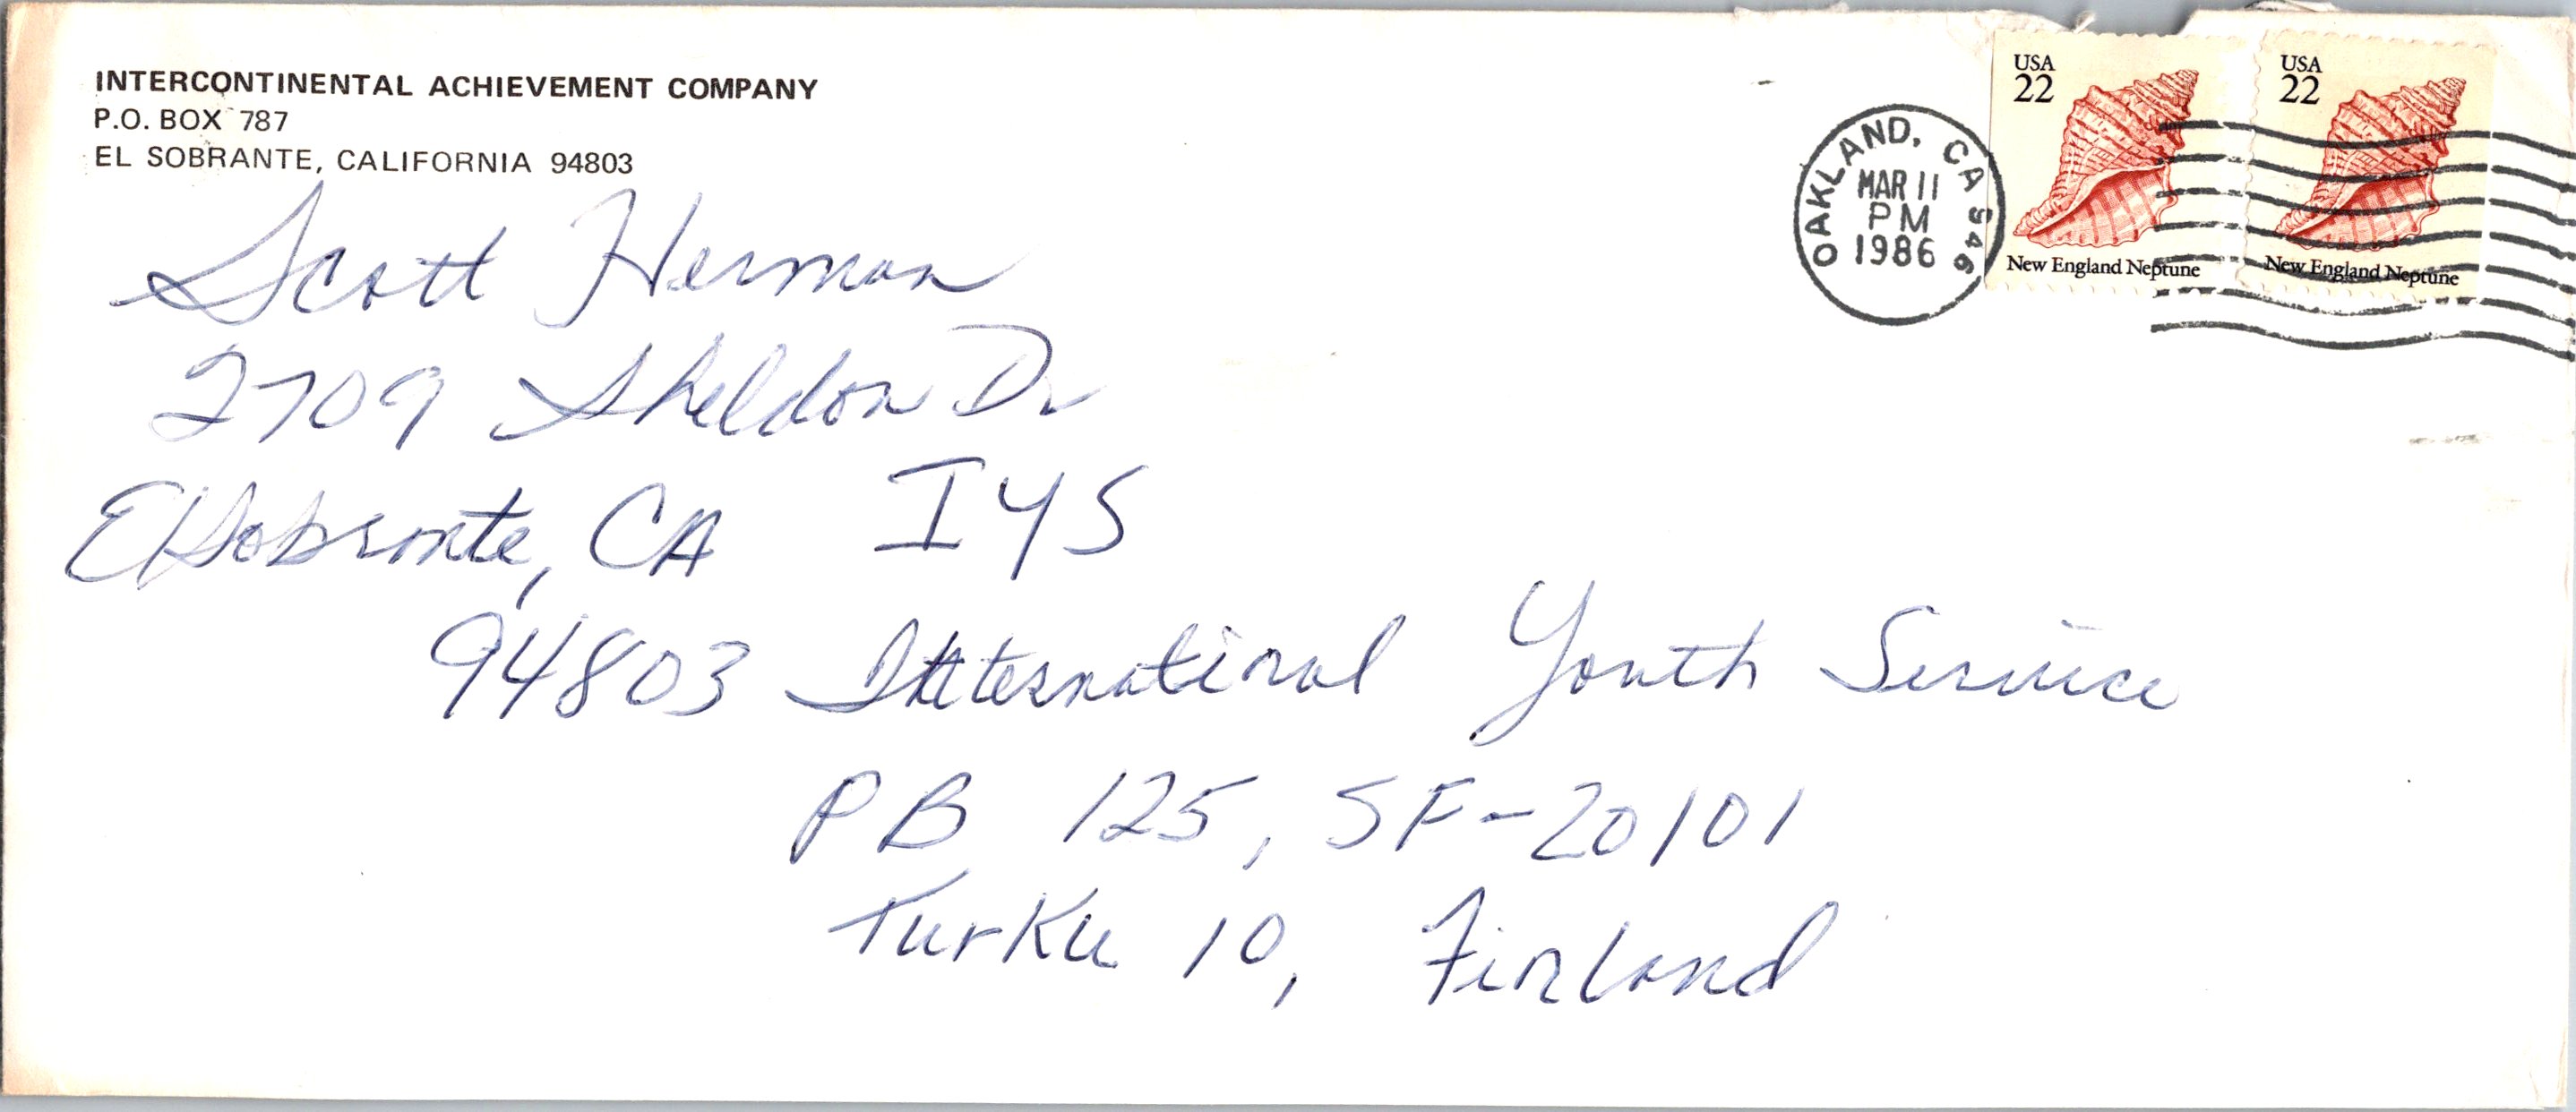 INTERCONTINENTAL ACHIEVEMENT COMPANY
P.O. BOX 787
EL SOBRANTE, CALIFORNIA 94803
Scott Herman
2709 Sheldon Dr
El Sobrante, CA
94803
OAKLAND, CA 946
MAR 11
PM
1986
USA
22
New England Neptune
USA
22
New England Neptune
IYS
International Youth Service
PB 125, SF-20101
Turku 10, Finland